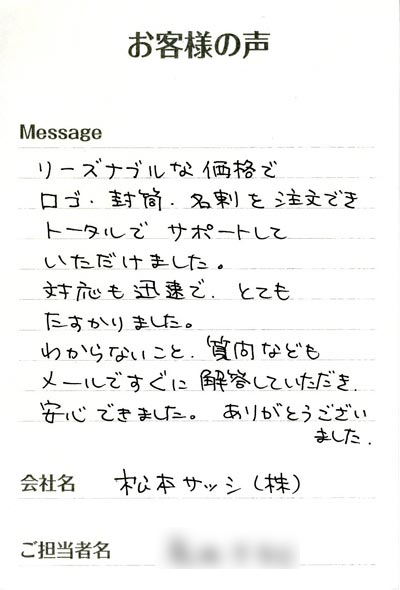 お客様の声
Message
リーズナブルな価格で
ロゴ・封筒・名刺を注文でき
トータルでサポートして
いただけました。
対応も迅速で、とても
たすかりました。
わからないこと、質問なども
メールですぐに解答していただき、
安心できました。ありがとうござい
ました.
会社名 松本サッシ(株)
ご担当者名